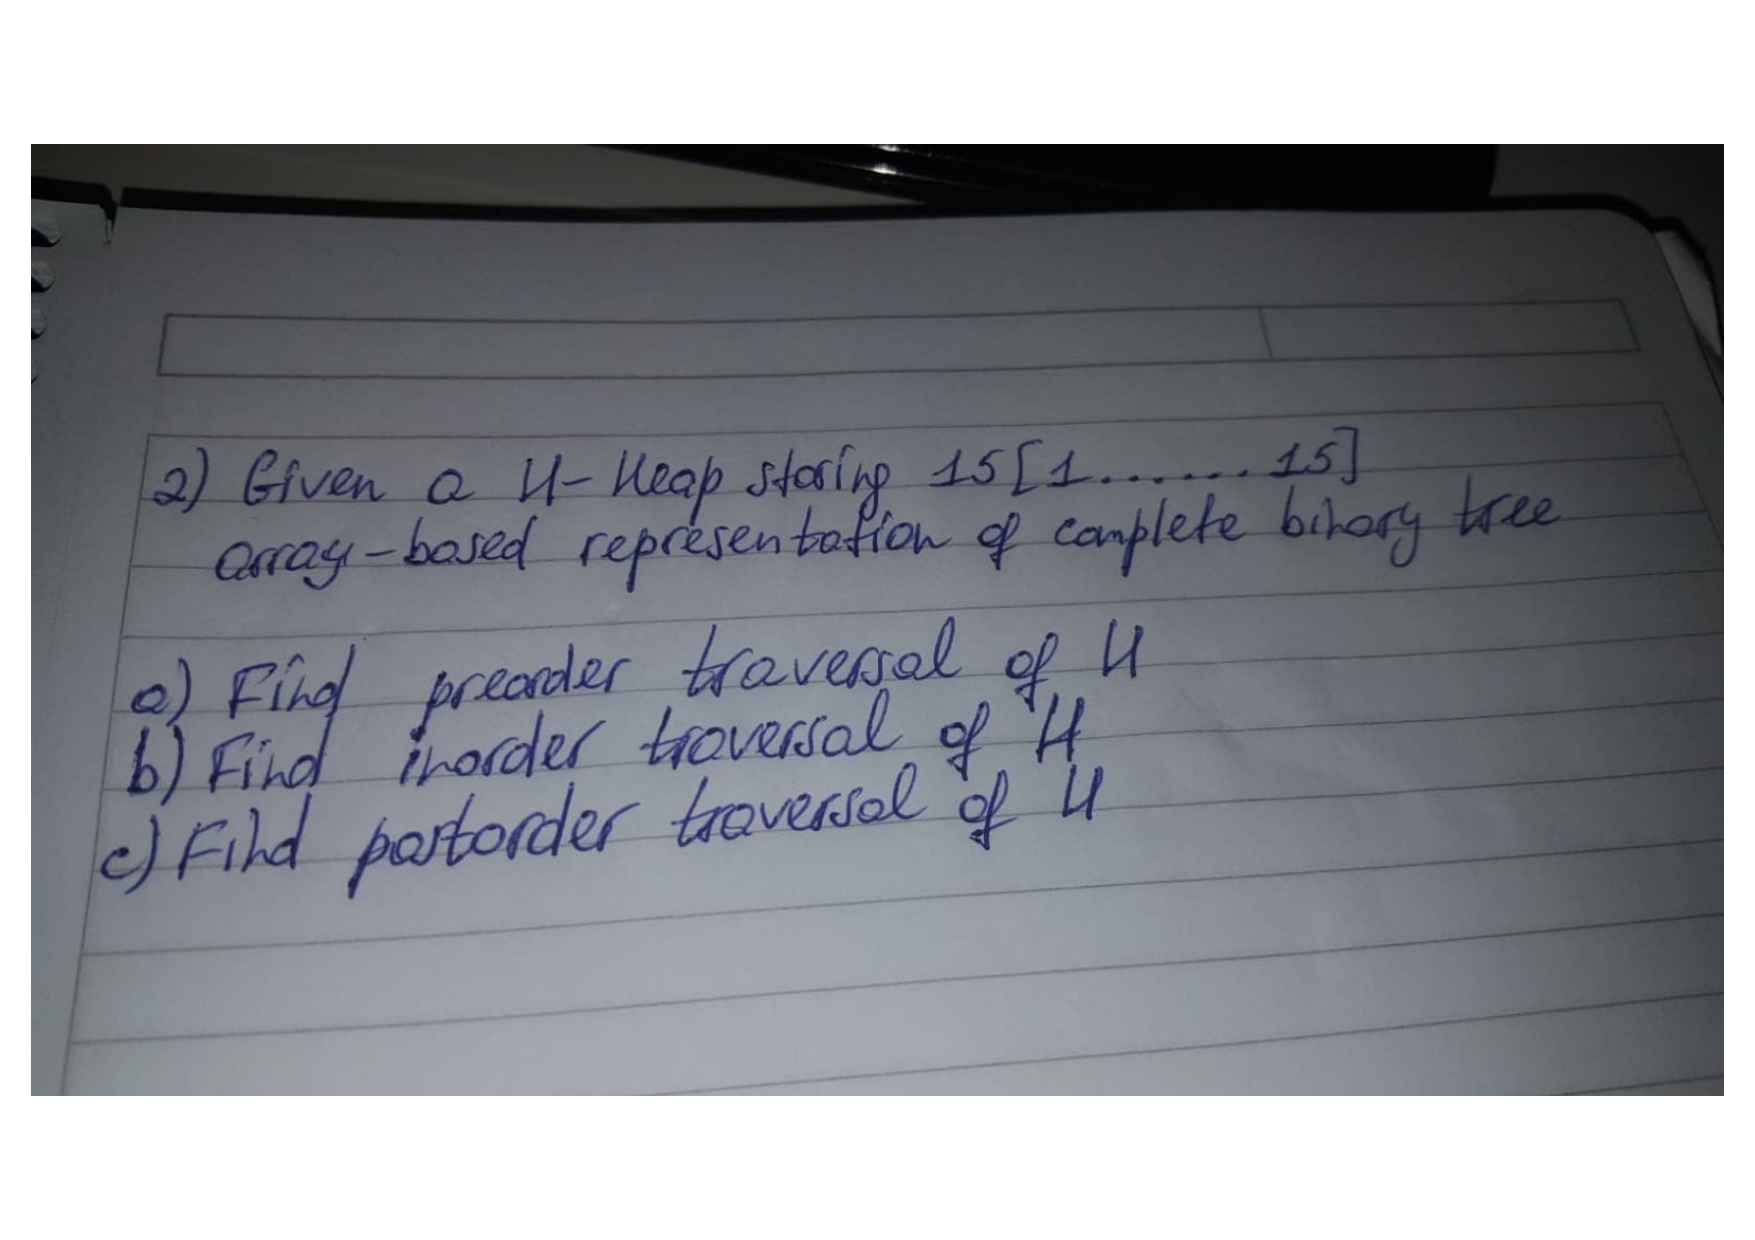 2) Given a H-Heap storing 15[1.......15]
array-based representation of complete binary tree
a) Find preorder traversal of H
b) Find inorder traversal of H
c) Find postorder traversal of H